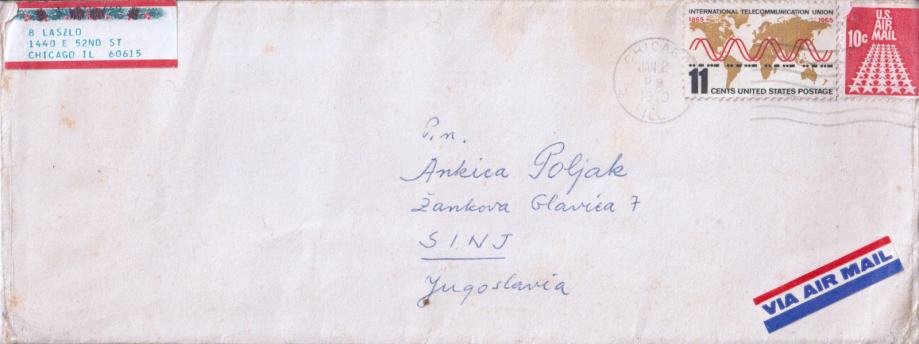 B LASZLO
1440 E 52ND ST
CHICAGO IL 60615
INTERNATIONAL TELECOMMUNICATION UNION
1865 1965
11 CENTS UNITED STATES POSTAGE
U.S.
AIR
MAIL
10c
CHICAGO
JAN 2
PM
1970
ILL
P.n.
Ankica Poljak
Žankova Glavica 7
SINJ
Jugoslavia
VIA AIR MAIL